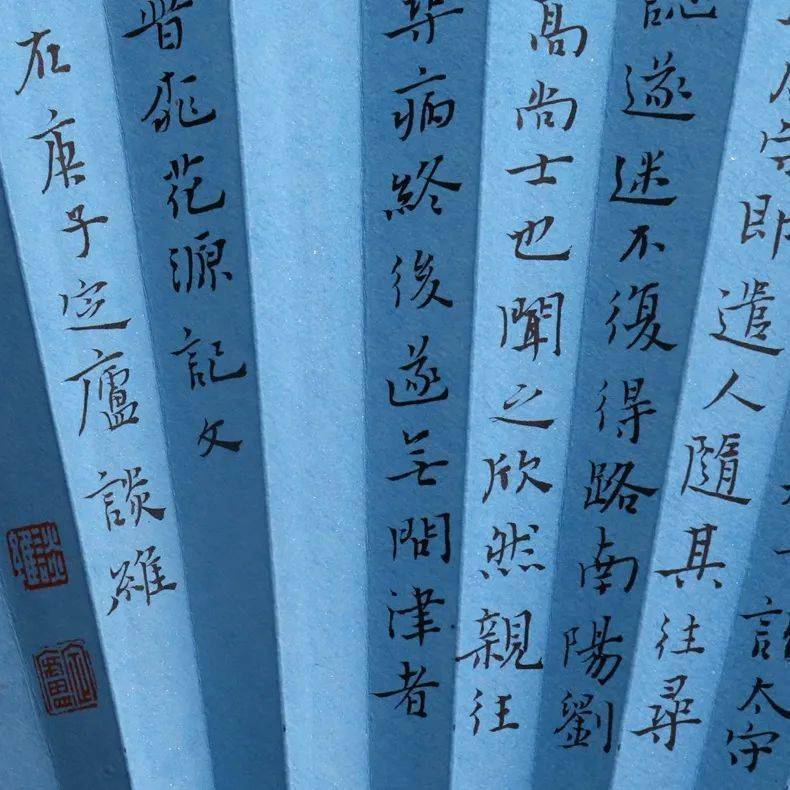 詣太守
守即遣人隨其往尋
誌遂迷不復得路南陽劉
高尚士也聞之欣然親往
尋病終後遂無問津者
晉桃花源記文
在庚子定廬談維